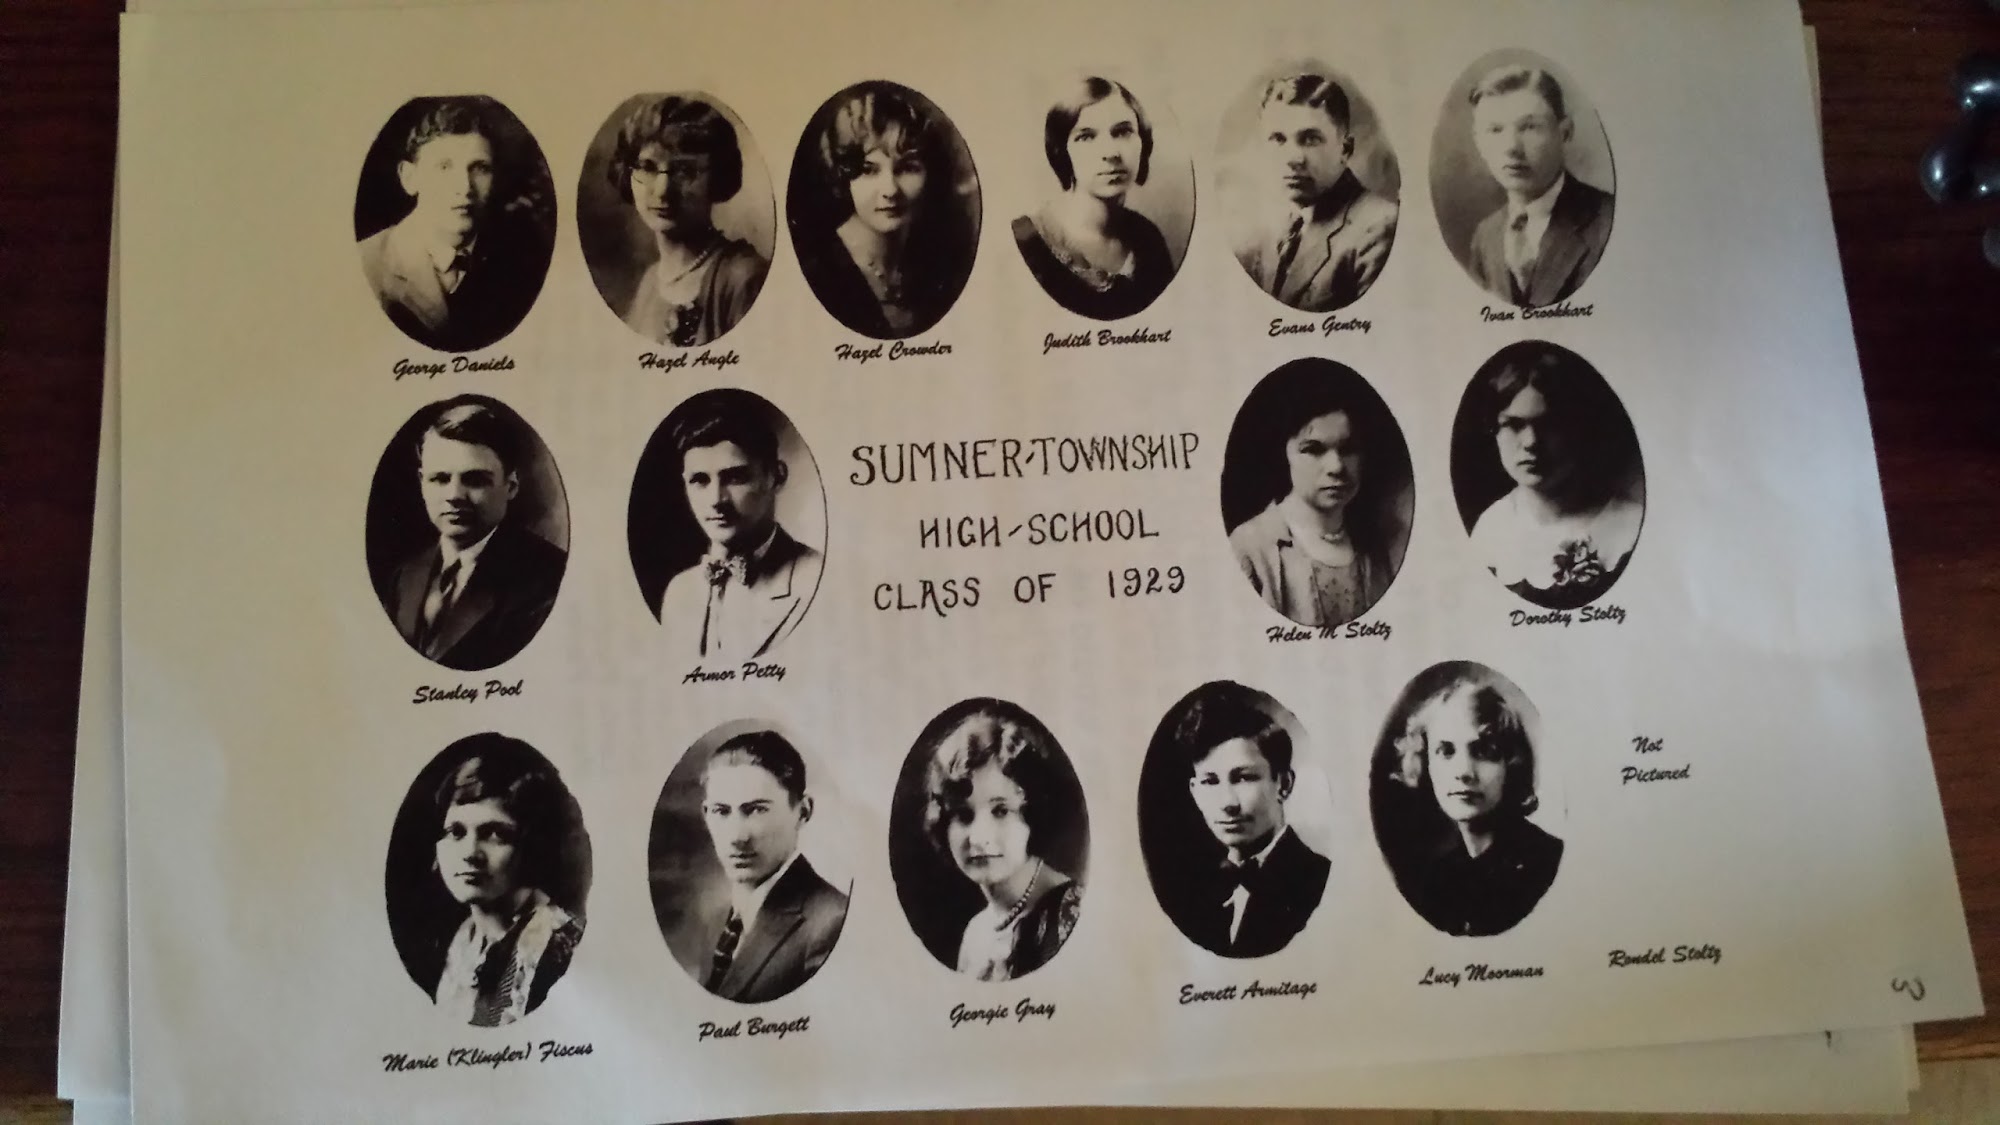 George Daniels
Hazel Angle
Hazel Crowder
Judith Brookhart
Evans Gentry
Ivan Brookhart
Stanley Pool
Armor Petty
SUMNER-TOWNSHIP
HIGH-SCHOOL
CLASS OF 1929
Helen M Stoltz
Dorothy Stoltz
Marie (Klingler) Fiscus
Paul Burgett
Georgie Gray
Everett Armitage
Lucy Moorman
Not
Pictured
Rondel Stoltz
3